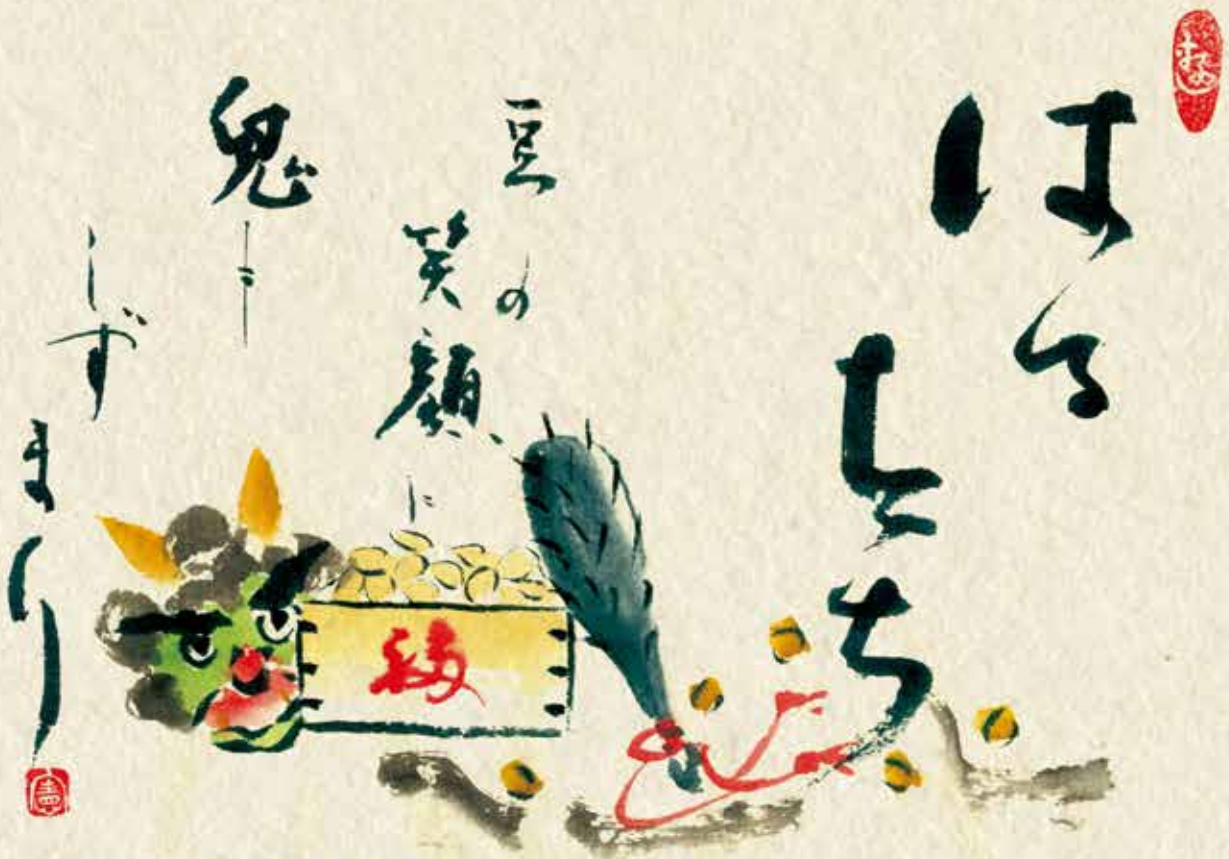 はる
たち
豆の
笑顔に
鬼も
しずまり
福